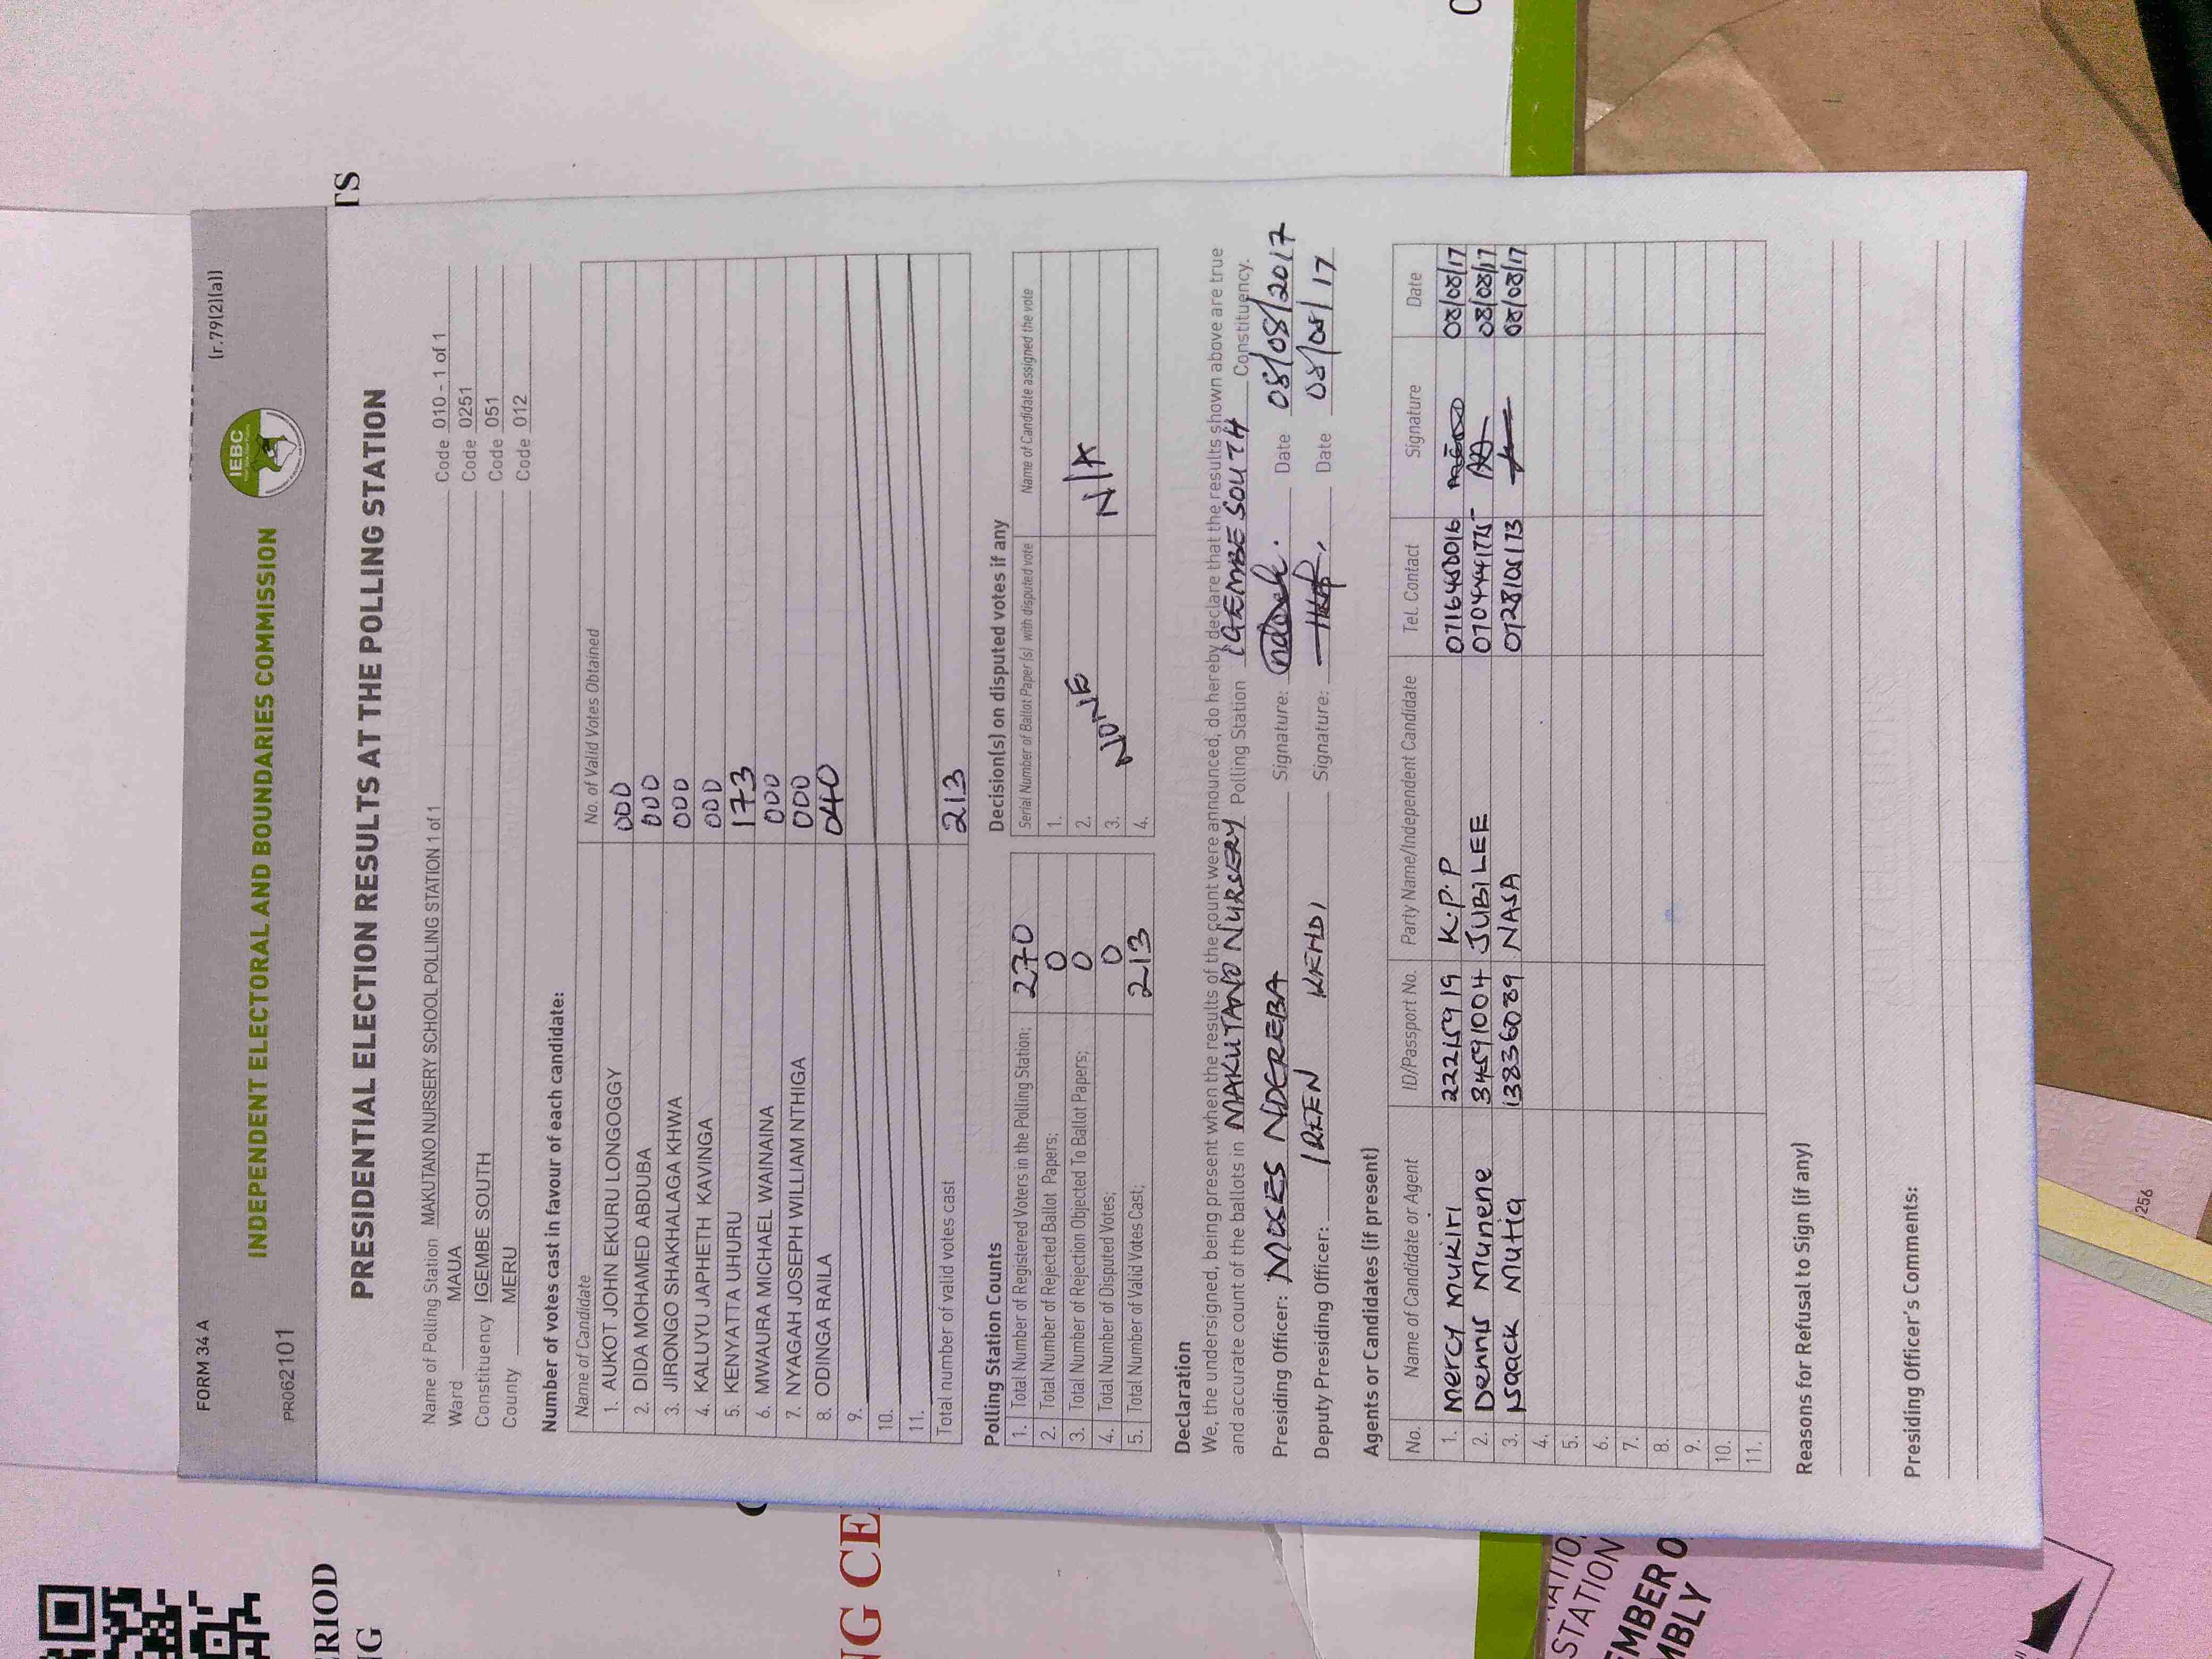 FORM 34 A
(r.79(2)(a))
INDEPENDENT ELECTORAL AND BOUNDARIES COMMISSION
IEBC
PR062101
PRESIDENTIAL ELECTION RESULTS AT THE POLLING STATION
Name of Polling Station MAKUTANO NURSERY SCHOOL POLLING STATION 1 of 1 Code 010 - 1 of 1
Ward MAUA Code 0251
Constituency IGEMBE SOUTH Code 051
County MERU Code 012
Number of votes cast in favour of each candidate:
Name of Candidate No. of Valid Votes Obtained
1. AUKOT JOHN EKURU LONGOGGY 000
2. DIDA MOHAMED ABDUBA 000
3. JIRONGO SHAKHALAGA KHWA 000
4. KALUYU JAPHETH KAVINGA 000
5. KENYATTA UHURU 173
6. MWAURA MICHAEL WAINAINA 000
7. NYAGAH JOSEPH WILLIAM NTHIGA 000
8. ODINGA RAILA 040
9.
10.
11.
Total number of valid votes cast 213
Polling Station Counts
1. Total Number of Registered Voters in the Polling Station; 270
2. Total Number of Rejected Ballot Papers; 0
3. Total Number of Rejection Objected To Ballot Papers; 0
4. Total Number of Disputed Votes; 0
5. Total Number of Valid Votes Cast; 213
Decision(s) on disputed votes if any
Serial Number of Ballot Paper(s) with disputed vote Name of Candidate assigned the vote
1.
2. NONE
3. NONE N/A
4.
Declaration
We, the undersigned, being present when the results of the count were announced, do hereby declare that the results shown above are true
and accurate count of the ballots in MAKUTANO NURSERY Polling Station IGEMBE SOUTH Constituency.
Presiding Officer: MOSES NDEREBA Signature: Date 08/08/2017
Deputy Presiding Officer: IREEN KENDI Signature: Date 08/08/17
Agents or Candidates (if present)
No. Name of Candidate or Agent ID/Passport No. Party Name/Independent Candidate Tel. Contact Signature Date
1. Mercy Mukiri 22215919 K.P.P 0716450016 08/08/17
2. Dennis Munene 34591004 JUBILEE 0704441775 08/08/17
3. Isaack Mutia 13836039 NASA 0728105173 08/08/17
4.
5.
6.
7.
8.
9.
10.
11.
Reasons for Refusal to Sign (if any)
Presiding Officer's Comments:
TS
RIOD
NG
NG CE
STATION
EMBER O
MBLY
256